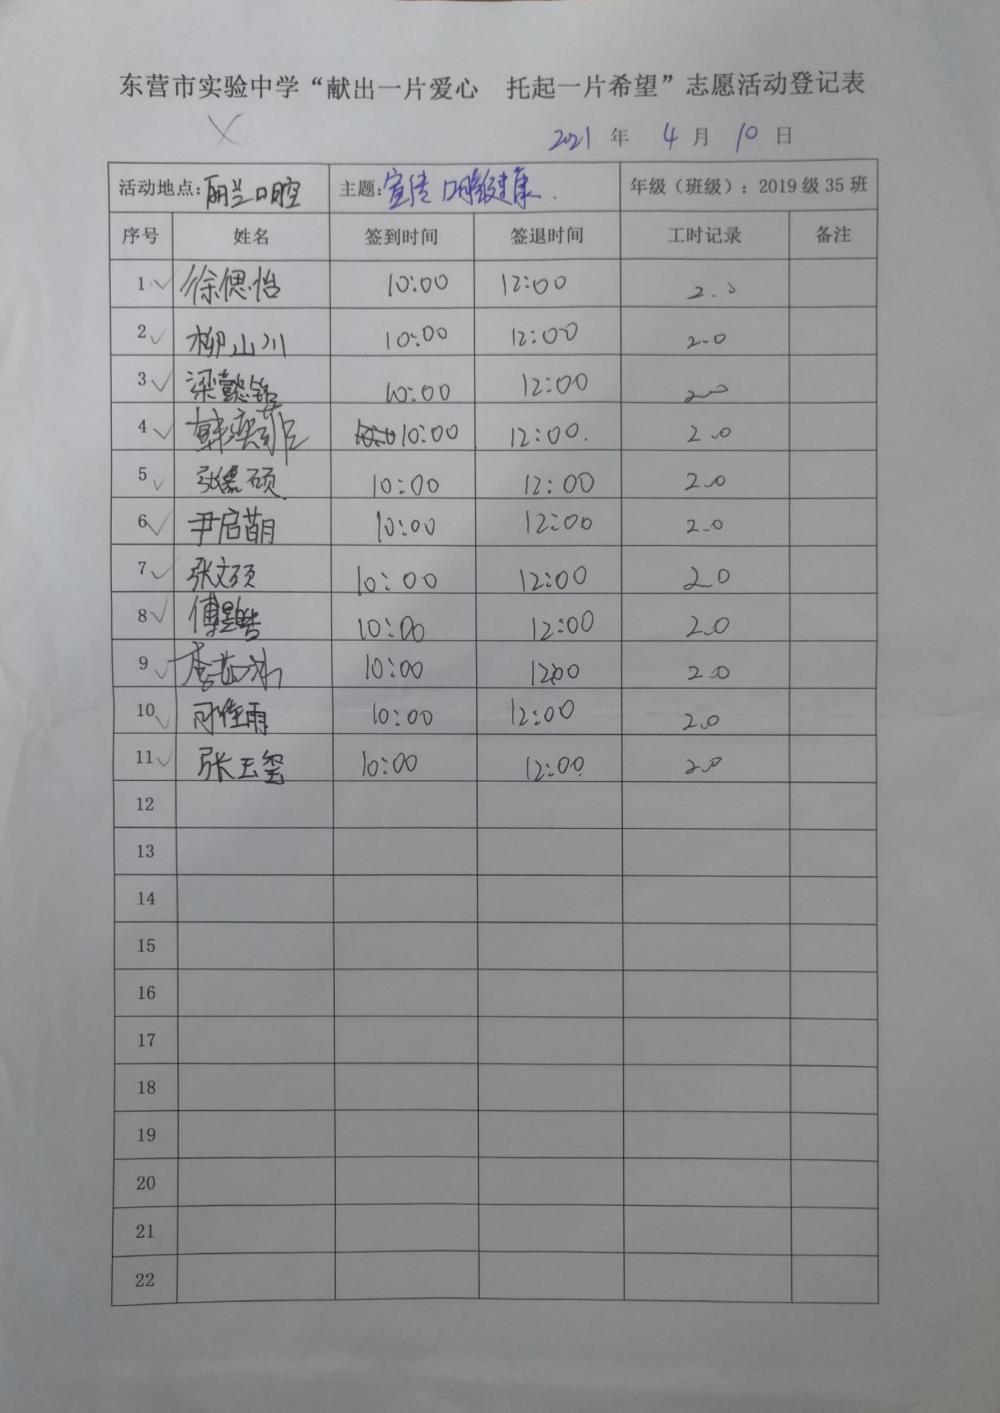 东营市实验中学“献出一片爱心 托起一片希望”志愿活动登记表
2021 年 4 月 10 日
活动地点:丽兰口腔 主题:宣传口腔健康. 年级（班级）: 2019 级 35 班
序号 姓名 签到时间 签退时间 工时记录 备注
1 徐偲怡 10:00 12:00 2.0
2 柳山川 10:00 12:00 2.0
3 梁懿铭 10:00 12:00 2.0
4 韩奕菲 10:00 12:00. 2.0
5 张硕 10:00 12:00 2.0
6 尹启萌 10:00 12:00 2.0
7 张文硕 10:00 12:00 2.0
8 傅 10:00 12:00 2.0
9 李茹冰 10:00 12:00 2.0
10 佳雨 10:00 12:00 2.0
11 张玉玺 10:00 12:00 2.0
12
13
14
15
16
17
18
19
20
21
22